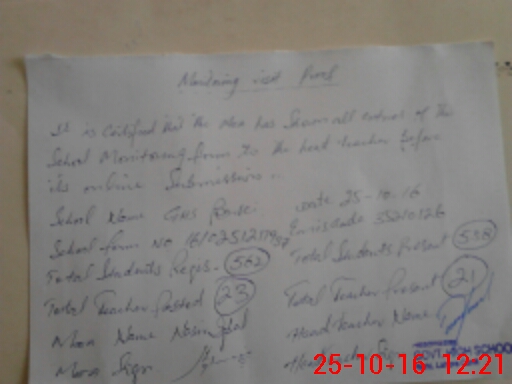 Monitoring visit Proof
It is Certified that the Mea has Shown all entries of the
School Monitoring form to the head teacher before
its online Submission.
School Name GHS date 25-10-16
School form No Emis code 35210126
Total Students Regis. 562 Total Students Present 538
Total Teacher Posted 23 Total Teacher Present 21
Mea Name Head Teacher Name
Mea Sign Head
GOVT. HIGH SCHOOL
25-10-16 12:21